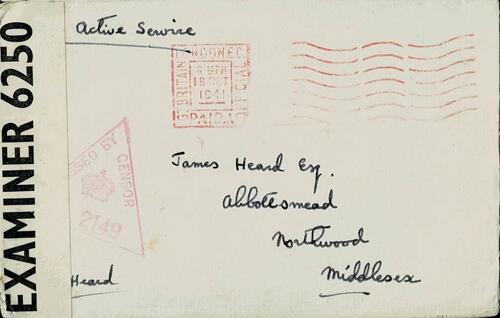 EXAMINER 6250
Active Service
LONDON EC
GT BRITAIN
OFFICIAL
PAID
18 OCT
1941
PASSED BY CENSOR
2149
James Heard Esq.
Abbotsmead
Northwood
Middlesex
Heard